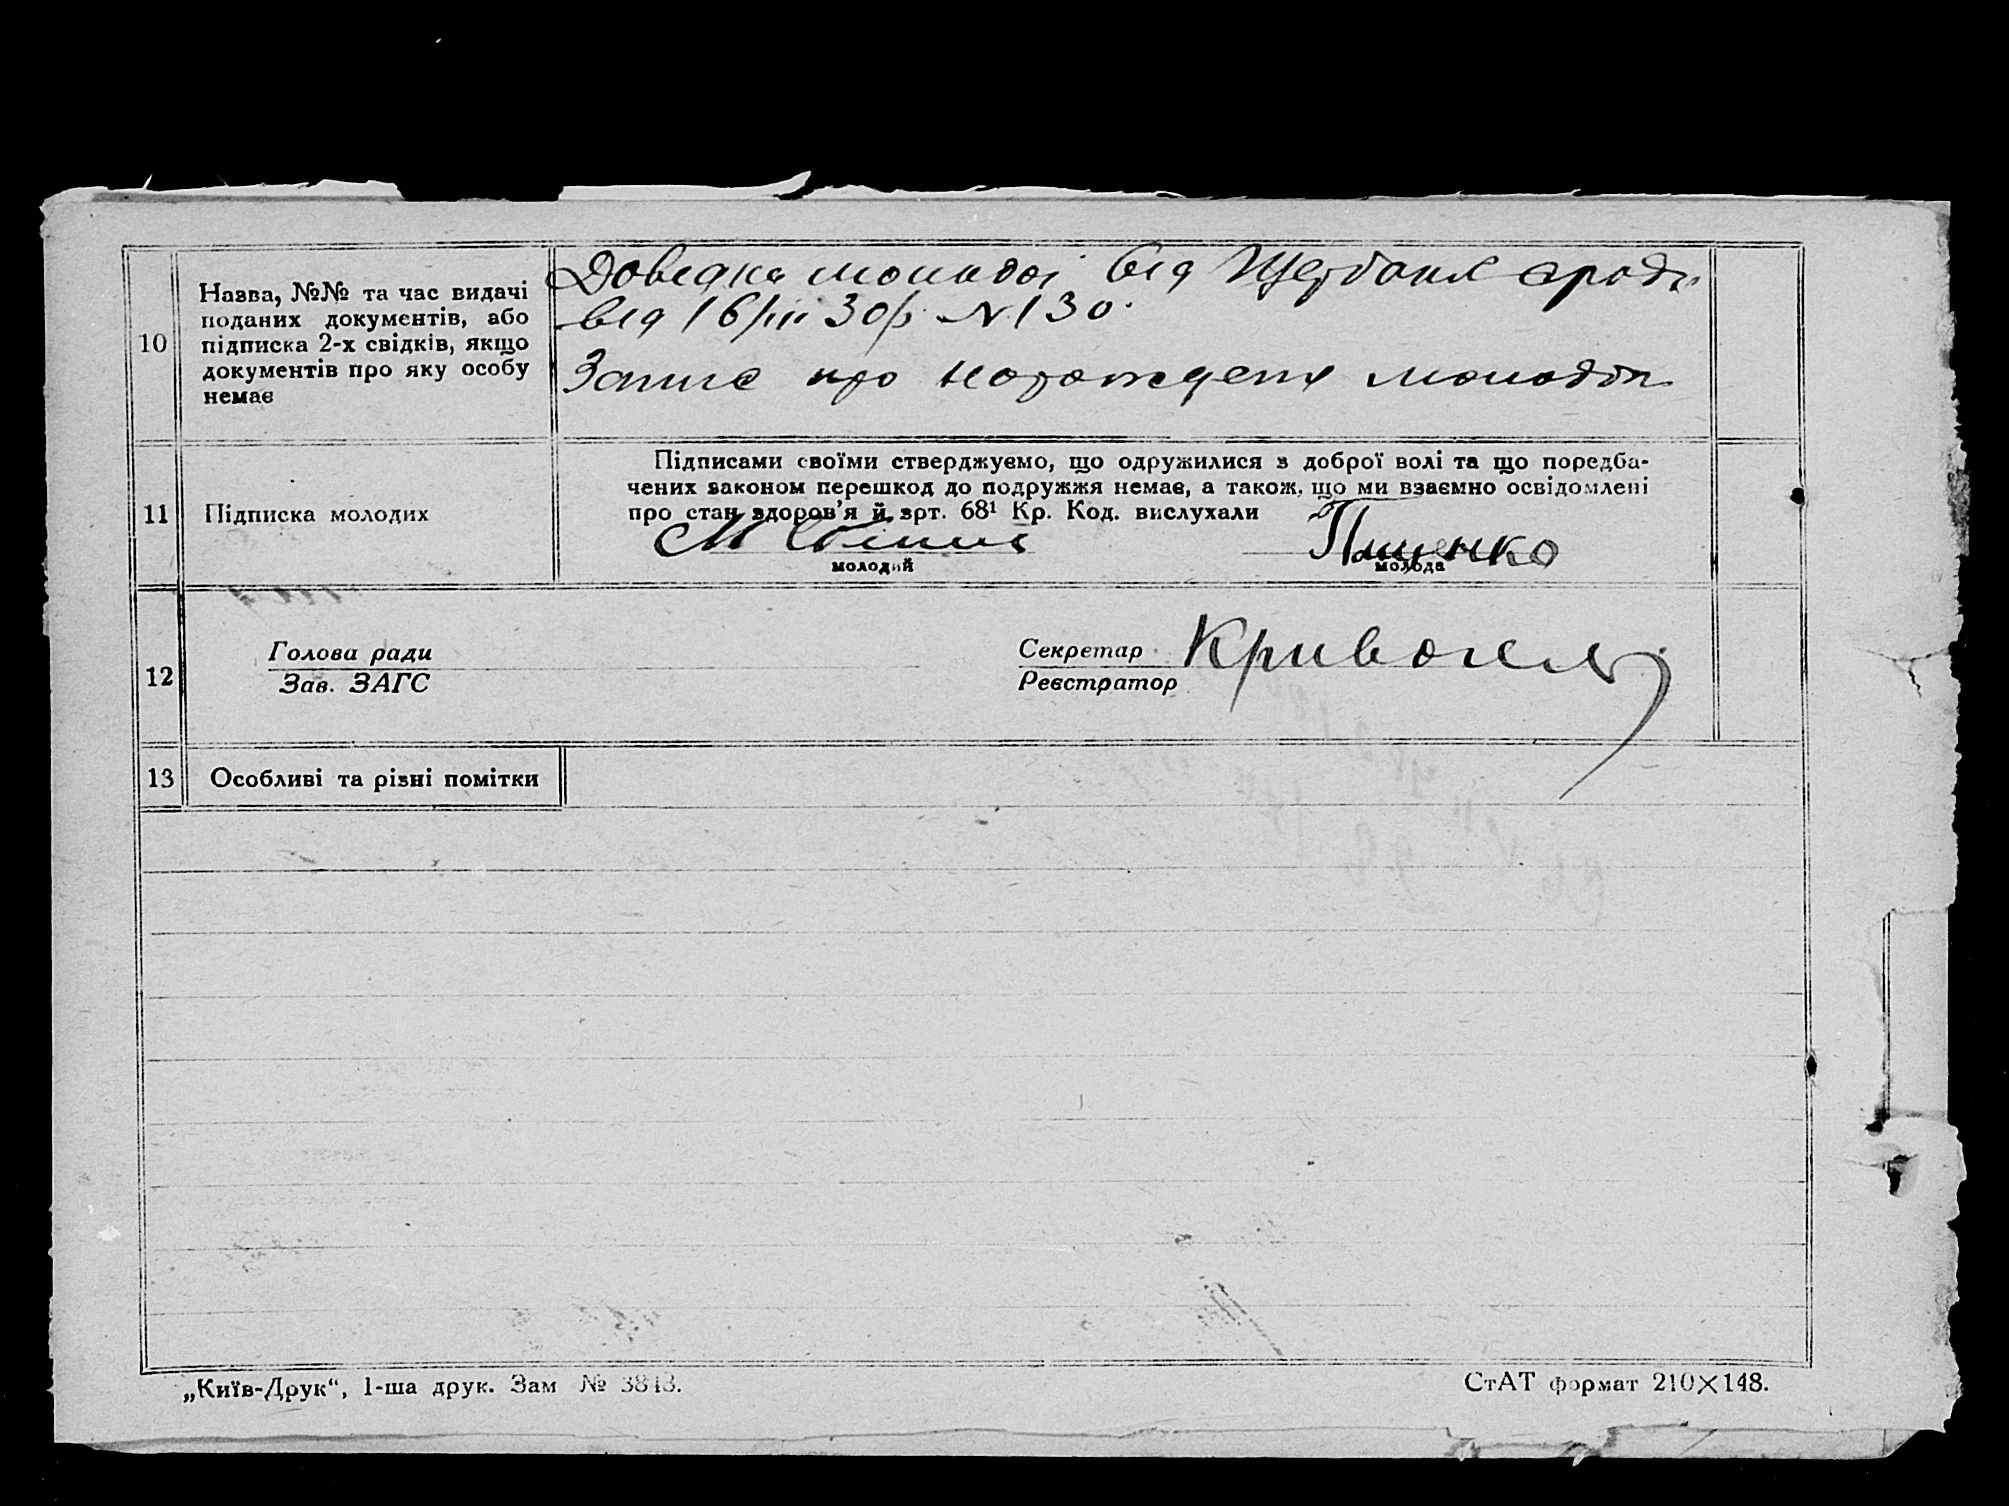 10
Назва, №№ та час видачі
поданих документів, або
підписка 2-х свідків, якщо
документів про яку особу
немає
Довідка молодої від Щербанів
від 16/III 30 р. N 130.
Запис про народження
11
Підписка молодих
Підписами своїми стверджуємо, що одружилися з доброї волі та що поредба-
чених законом перешкод до подружжя немає, а також, що ми взаємно освідомлені
про стан здоров'я й арт. 68¹ Кр. Код. вислухали
молодий
Пащенко
молода
12
Голова ради
Зав. ЗАГС
Секретар
Реєстратор
13
Особливі та різні помітки
„Київ-Друк“, 1-ша друк. Зам № 3843.
СтАТ формат 210×148.